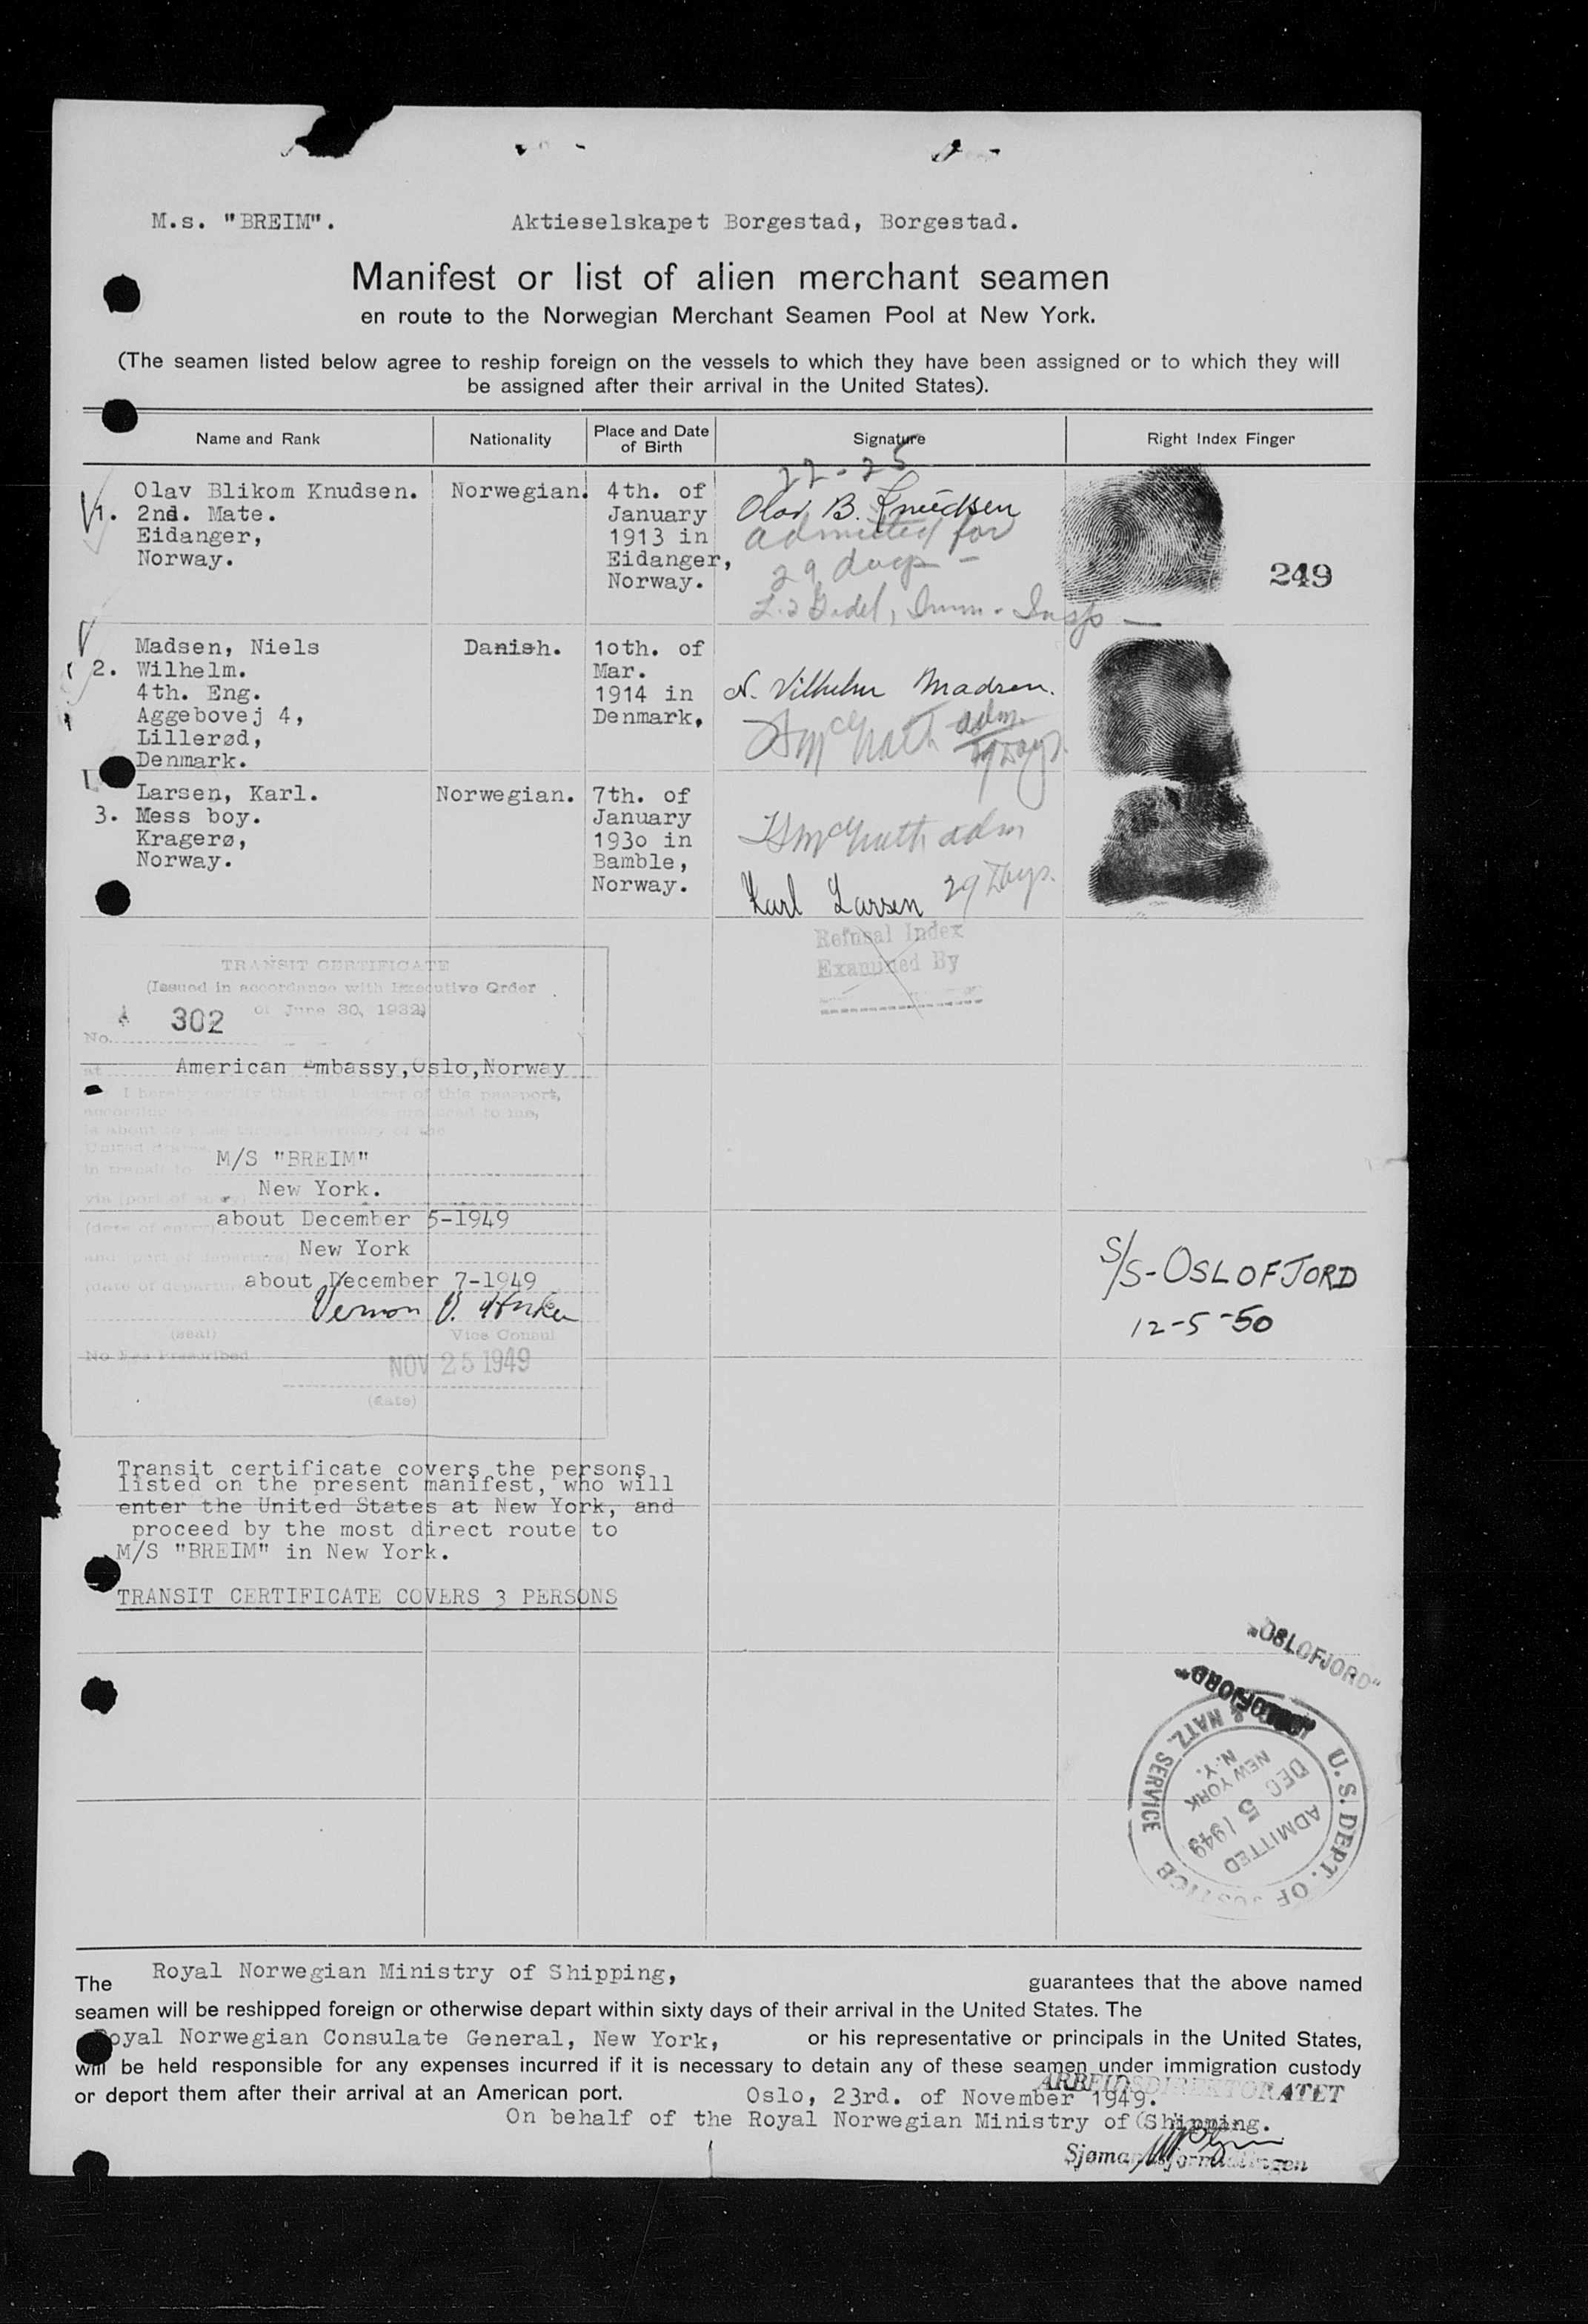 M.s. "BREIM". Aktieselskapet Borgestad, Borgestad.
Manifest or list of alien merchant seamen
en route to the Norwegian Merchant Seamen Pool at New York.
(The seamen listed below agree to reship foreign on the vessels to which they have been assigned or to which they will
be assigned after their arrival in the United States).
Name and Rank Nationality Place and Date of Birth Signature Right Index Finger
22-25
1. Olav Blikom Knudsen.
2nd. Mate.
Eidanger,
Norway.
Norwegian.
4th. of
January
1913 in
Eidanger,
Norway.
Olav B. Knudsen
admitted for
29 days -
Imm. Insp -
249
2. Madsen, Niels
Wilhelm.
4th. Eng.
Aggebovej 4,
Lillerød,
Denmark.
Danish.
1oth. of
Mar.
1914 in
Denmark,
N. Vilhelm Madsen.
HMcGrath adm.
29 Days.
3. Larsen, Karl.
Mess boy.
Kragerø,
Norway.
Norwegian.
7th. of
January
193o in
Bamble,
Norway.
HMcGrath adm
29 Days.
Karl Larsen
Refusal Index
Examined By
TRANSIT CERTIFICATE
(Issued in accordance with Executive Order
of June 30, 1932)
No. 302
at American Embassy,Oslo,Norway
I hereby certify that the bearer of this passport,
according to produced to me,
is about to pass through territory of the
United States
in transit to M/S "BREIM"
via (port of entry) New York.
(date of entry) about December 5-1949
and (port of departure) New York
(date of departure) about December 7-1949
Vernon V.
(seal) Vice Consul
No Fee Prescribed NOV 25 1949
(date)
S/S-OSLOFJORD
12-5-50
Transit certificate covers the persons
listed on the present manifest, who will
enter the United States at New York, and
proceed by the most direct route to
M/S "BREIM" in New York.
TRANSIT CERTIFICATE COVERS 3 PERSONS
"OSLOFJORD"
"OSLOFJORD"
U.S. DEPT. OF JUSTICE
& NATZ. SERVICE
NEW YORK
N.Y.
DEC 5 1949
ADMITTED
The Royal Norwegian Ministry of Shipping, guarantees that the above named
seamen will be reshipped foreign or otherwise depart within sixty days of their arrival in the United States. The
Royal Norwegian Consulate General, New York, or his representative or principals in the United States,
will be held responsible for any expenses incurred if it is necessary to detain any of these seamen under immigration custody
or deport them after their arrival at an American port. Oslo, 23rd. of November 1949.
ARBEIDSDIREKTORATET
On behalf of the Royal Norwegian Ministry of Shipping.